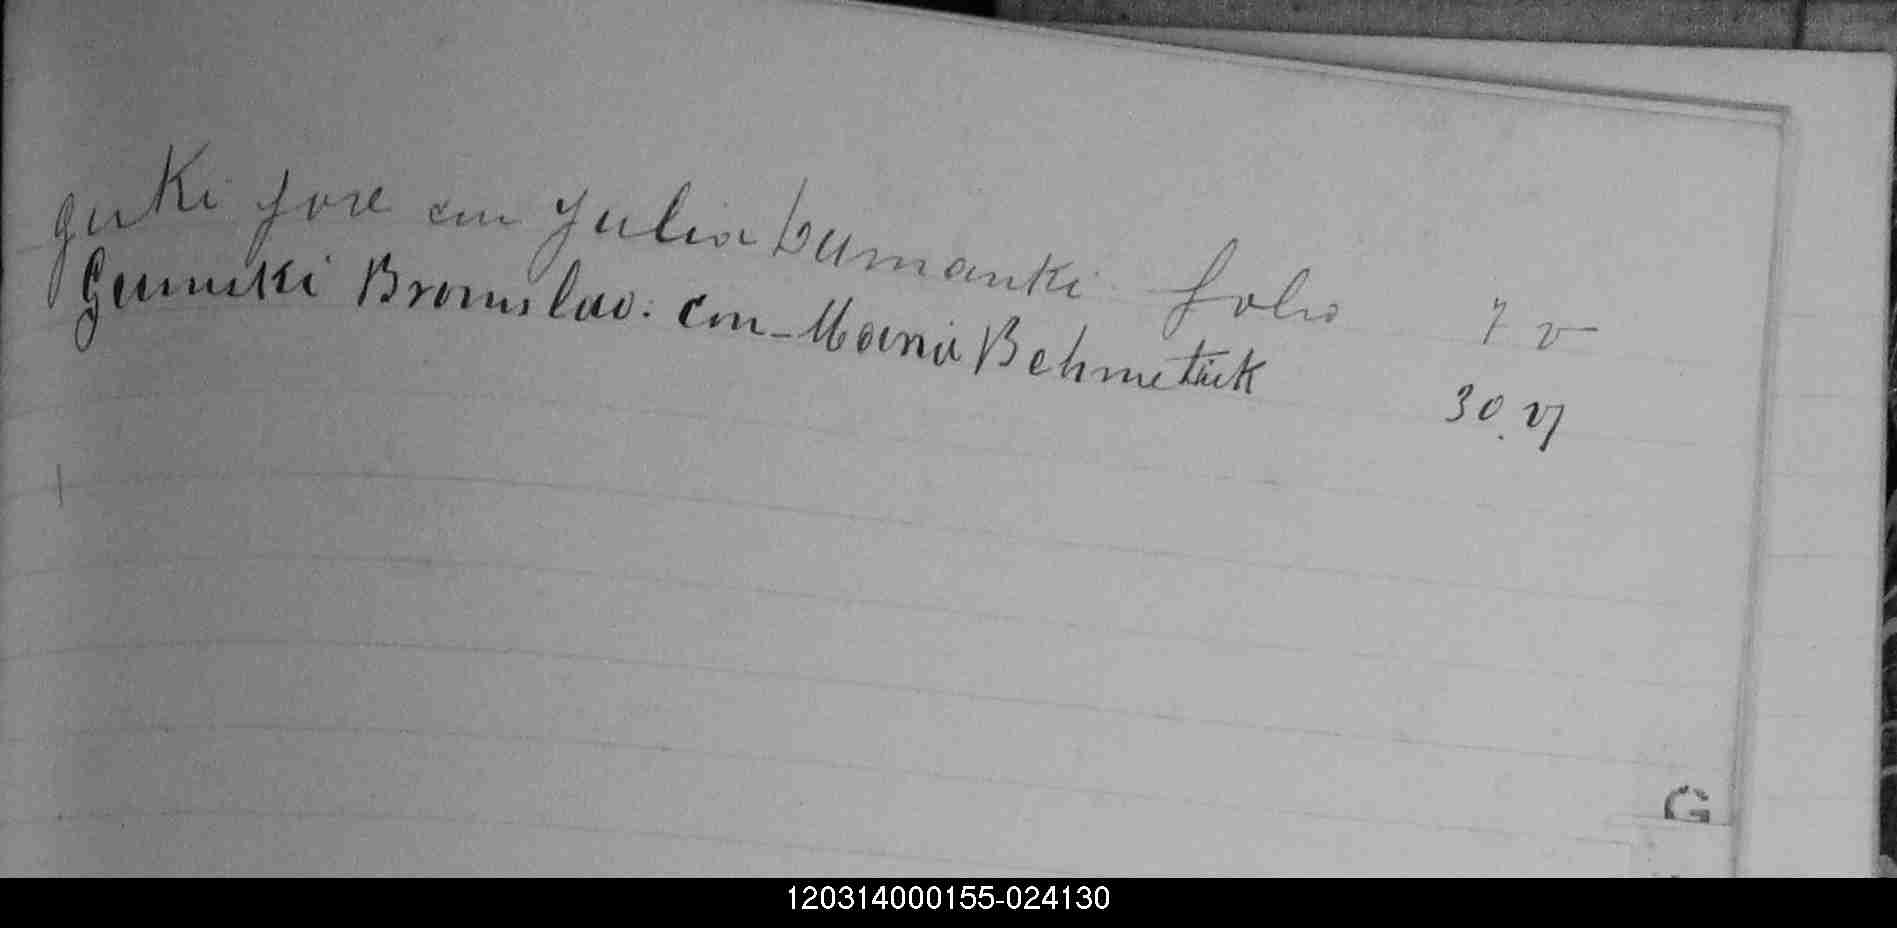 guki Jose con Julia Lumanki folio 7 v
Gumuski Bronislao. con Maria Behmetiuk 30. v
G
120314000155-024130